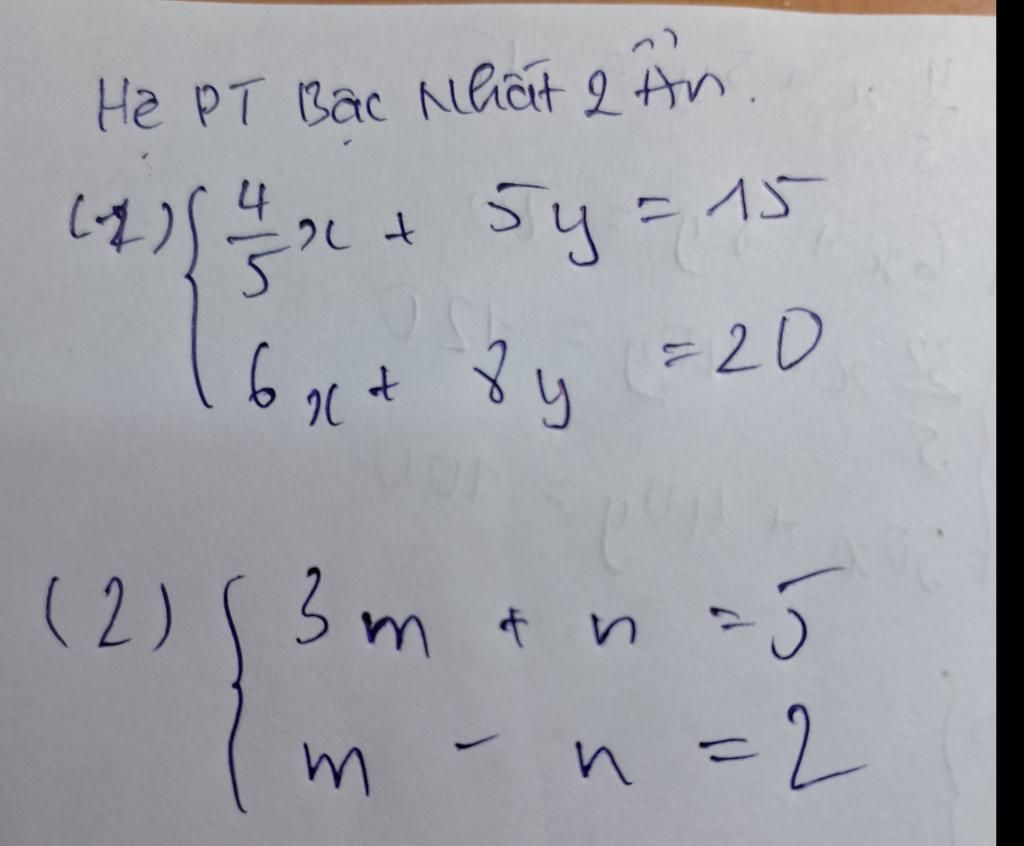 Hệ PT Bậc Nhất 2 Ẩn.
(1) { 4/5 x + 5y = 15
6x + 8y = 20
(2) { 3m + n = 5
m - n = 2